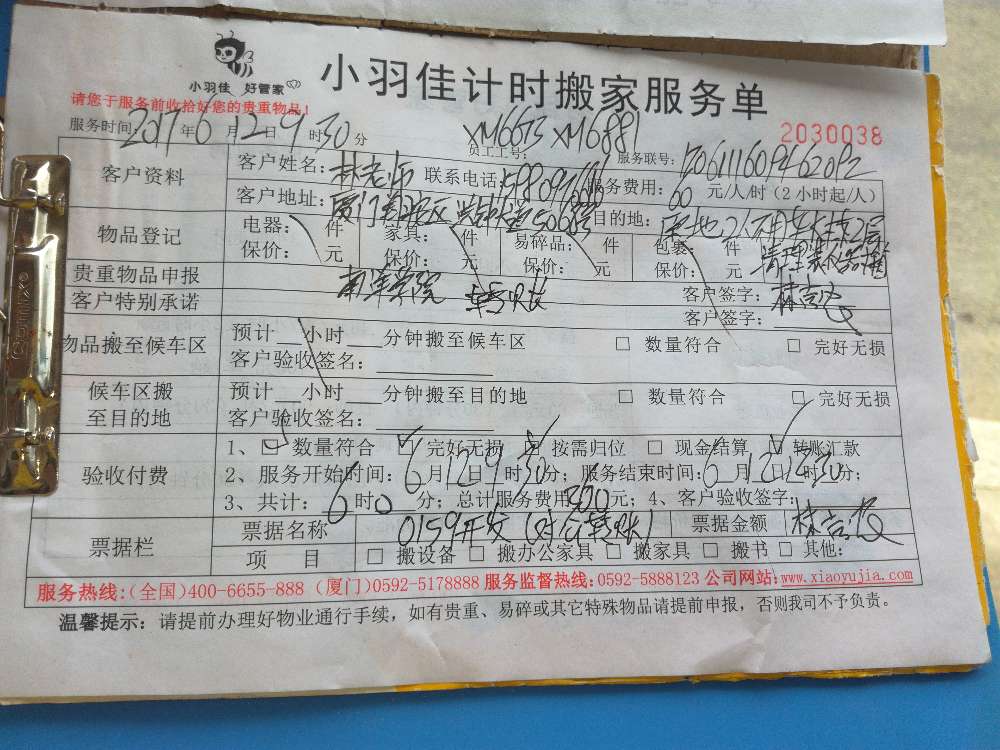 小羽佳 好管家
小羽佳计时搬家服务单
请您于服务前收拾好您的贵重物品!
2030038
服务时间: 2017年6月12日9时30分 员工工号: XM6673 XM6881 服务联号:
客户资料 客户姓名: 林老师 联系电话: 服务费用: 60 元/人/时 (2小时起/人)
客户地址: 目的地:
物品登记 电器: 件 家具: 件 易碎品: 件 包裹: 件
保价: 元 保价: 元 保价: 元 保价: 元
贵重物品申报 南洋学院 客户签字:
客户特别承诺 客户签字:
物品搬至候车区 预计__小时___分钟搬至候车区 □ 数量符合 □ 完好无损
客户验收签名:
候车区搬至目的地 预计__小时___分钟搬至目的地 □ 数量符合 □ 完好无损
客户验收签名:
验收付费 1、☑ 数量符合 ☑ 完好无损 ☑ 按需归位 □ 现金结算 ☑ 转账汇款
2、服务开始时间: 6月12日9时30分; 服务结束时间: 6月12日12时30分;
3、共计: 6时0分; 总计服务费用: 元; 4、客户验收签字:
票据栏 票据名称 0159开发(对公转账) 票据金额
项 目 □ 搬设备 □ 搬办公家具 □ 搬家具 □ 搬书 □ 其他:
服务热线:(全国)400-6655-888 (厦门)0592-5178888 服务监督热线:0592-5888123 公司网站:www.xiaoyujia.com
温馨提示: 请提前办理好物业通行手续，如有贵重、易碎或其它特殊物品请提前申报，否则我司不予负责。